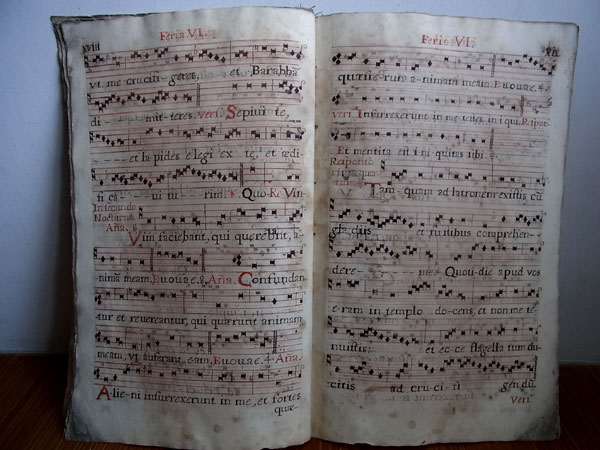 Feria VI.
xviii
ut me crucifigeret, et Barabbā
di- mitteres. Vers. Sepivi te,
et lapides elegi ex te, et ædi-
fi ca- vi tu- rim. Quo- Re Vin
In secundo
Nocturno
Aña. 8
Vim faciebant, qui querebāt, a-
nimā meam, Euouae. 8. Aña. Confundan
tur et revereantur, qui quærunt animam
meam, vt auferant, eam, Euouae. 4. Aña.
Alie-ni insurrexerunt in me, et fortes
quæ-
Feria VI.
quæsie runt animam meam, Euouae. 4.
veri. Insurrexerunt in me testes, ini qui,
Et mentita est i ni quitas sibi.
Tam- quam ad latronem existis cū
gla diis et fustibus comprehen-
dere me. Quoti-die apud vos
e-ram in templo do-cens, et non me te-
nuistis: et ec ce flagella tum du-
citis ad cru ci fi gen dū.
Veri